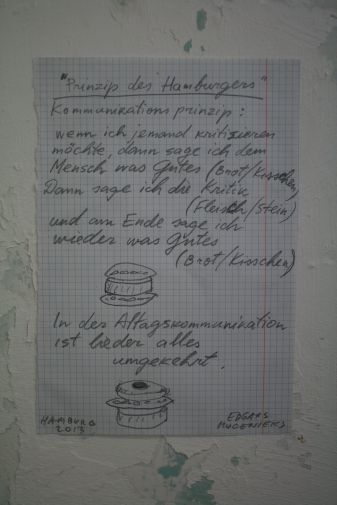 "Prinzip des Hamburgers"
Kommunikationsprinzip:
wenn ich jemand kritisieren
möchte, dann sage ich dem
Mensch was Gutes (Brot/Kisschen)
Dann sage ich die Kritik
(Fleisch/Stein)
und am Ende sage ich
wieder was Gutes
(Brot/Kisschen)
In der Alltagskommunikation
ist lieder alles
umgekehrt.
HAMBURG
2013
EDGARS
MUCENIEKS